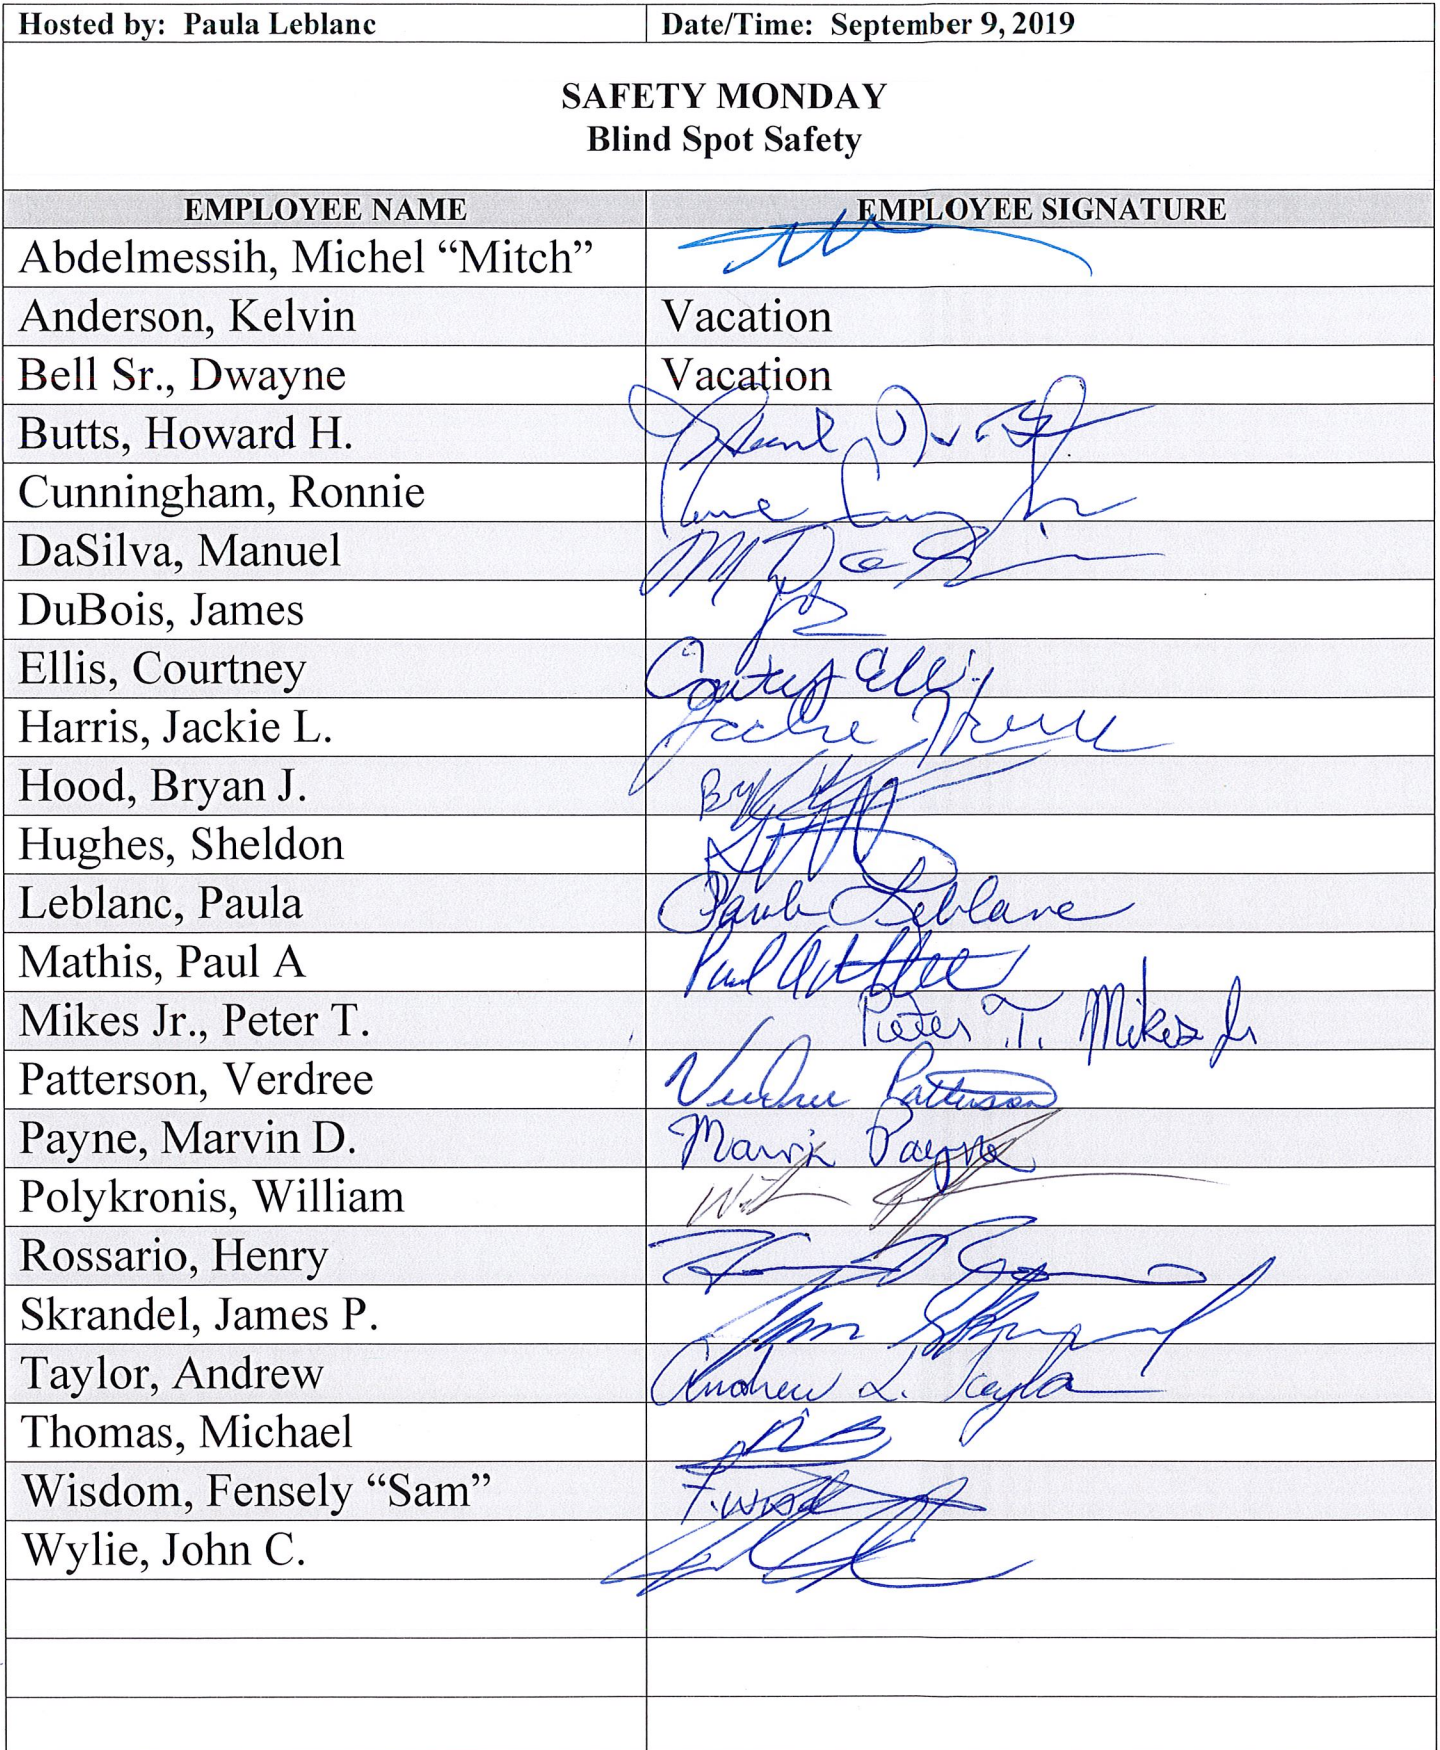 Hosted by: Paula Leblanc Date/Time: September 9, 2019
SAFETY MONDAY
Blind Spot Safety
EMPLOYEE NAME EMPLOYEE SIGNATURE
Abdelmessih, Michel “Mitch”
Anderson, Kelvin Vacation
Bell Sr., Dwayne Vacation
Butts, Howard H.
Cunningham, Ronnie
DaSilva, Manuel
DuBois, James
Ellis, Courtney
Harris, Jackie L. Jackie
Hood, Bryan J.
Hughes, Sheldon
Leblanc, Paula Paula Leblanc
Mathis, Paul A Paul
Mikes Jr., Peter T. Peter T. Mikes Jr
Patterson, Verdree Verdree Patterson
Payne, Marvin D. Marvin Payne
Polykronis, William
Rossario, Henry
Skrandel, James P.
Taylor, Andrew Andrew L. Taylor
Thomas, Michael
Wisdom, Fensely “Sam”
Wylie, John C.